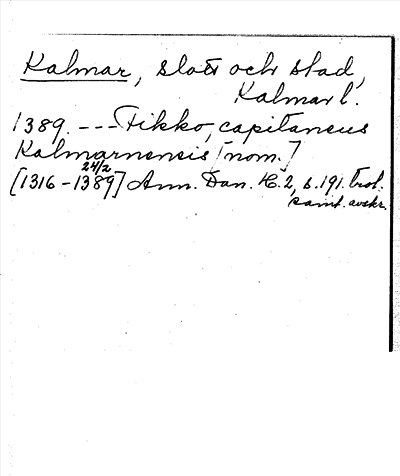 Kalmar, slott och stad,
Kalmar l.
1389. --- Fikko, capitaneus
Kalmarnensis [nom.]
24/2
[1316-1389] Ann. Dan. H. 2, s. 191. trol.
samt. avskr.